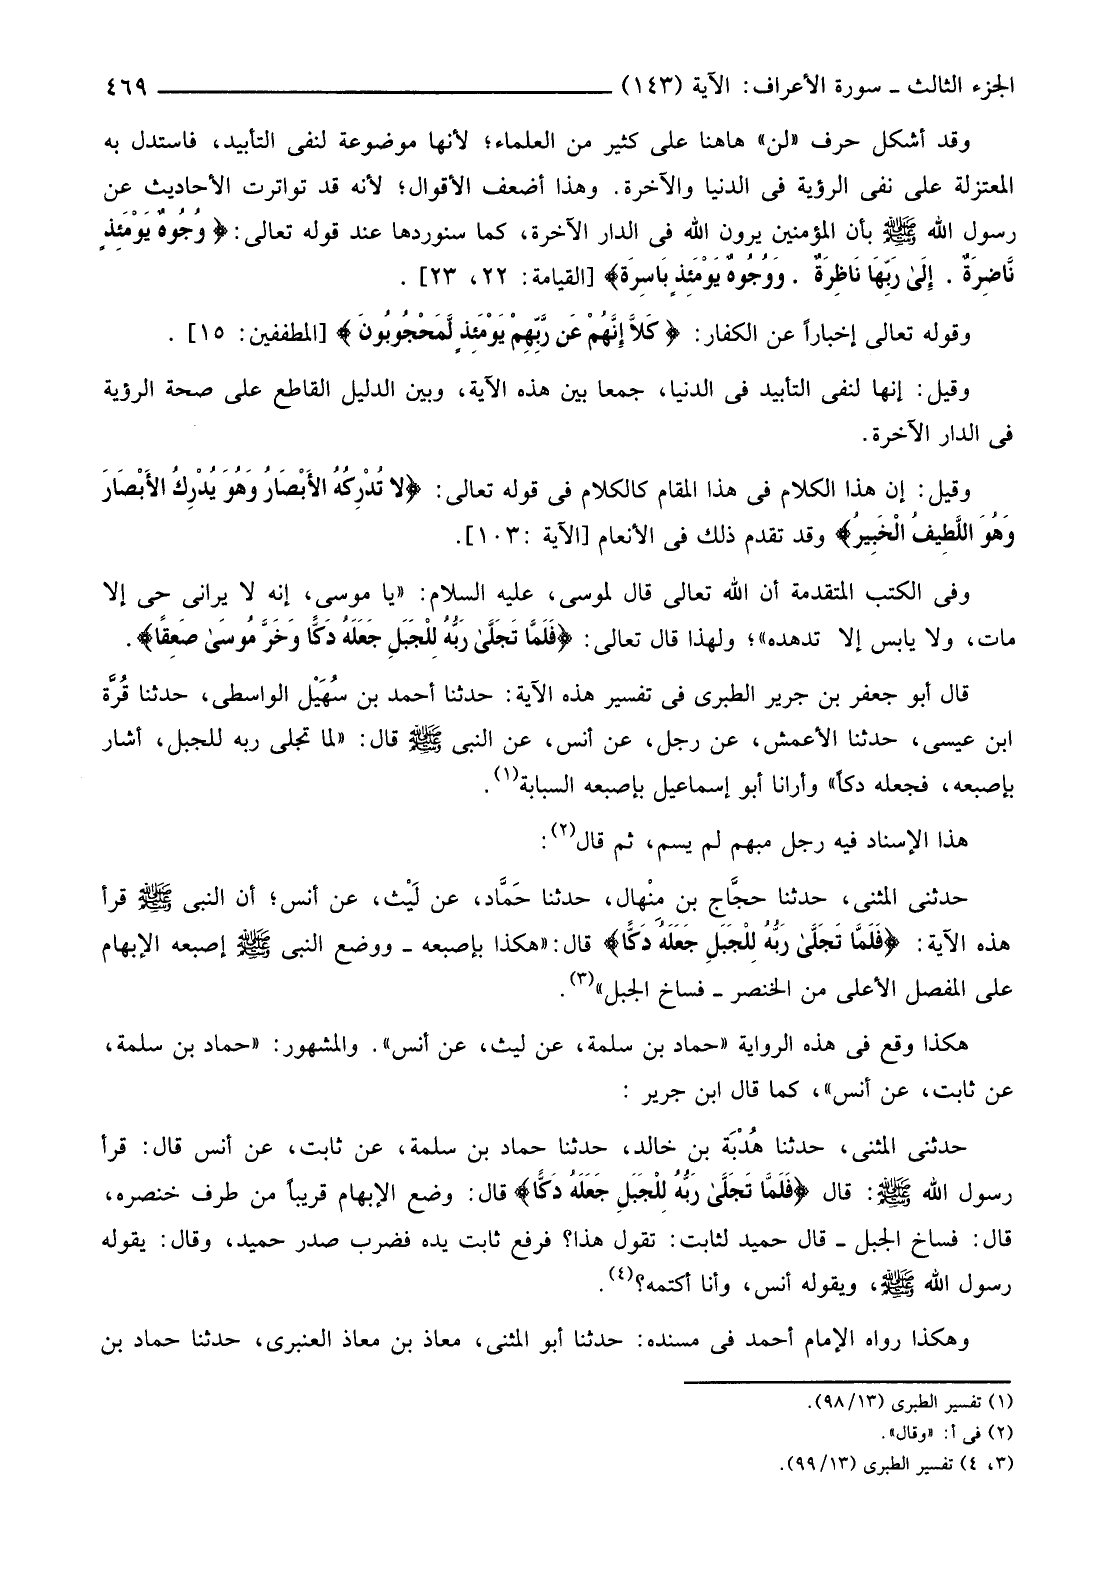 الجزء الثالث ـ سورة الأعراف: الآية (١٤٣) ــــــــــــــــــــ ٤٦٩
وقد أشكل حرف «لن» هاهنا على كثير من العلماء؛ لأنها موضوعة لنفى التأبيد، فاستدل به
المعتزلة على نفى الرؤية فى الدنيا والآخرة. وهذا أضعف الأقوال؛ لأنه قد تواترت الأحاديث عن
رسول الله ﷺ بأن المؤمنين يرون الله فى الدار الآخرة، كما سنوردها عند قوله تعالى: ﴿ وُجُوهٌ يَوْمَئِذٍ
نَّاضِرَةٌ . إِلَىٰ رَبِّهَا نَاظِرَةٌ . وَوُجُوهٌ يَوْمَئِذٍ بَاسِرَةٌ﴾ [القيامة: ٢٢، ٢٣] .
وقوله تعالى إخباراً عن الكفار: ﴿ كَلاَّ إِنَّهُمْ عَن رَّبِّهِمْ يَوْمَئِذٍ لَّمَحْجُوبُونَ ﴾ [المطففين: ١٥] .
وقيل: إنها لنفى التأبيد فى الدنيا، جمعا بين هذه الآية، وبين الدليل القاطع على صحة الرؤية
فى الدار الآخرة.
وقيل: إن هذا الكلام فى هذا المقام كالكلام فى قوله تعالى: ﴿لا تُدْرِكُهُ الأَبْصَارُ وَهُوَ يُدْرِكُ الأَبْصَارَ
وَهُوَ اللَّطِيفُ الْخَبِيرُ﴾ وقد تقدم ذلك فى الأنعام [الآية :١٠٣].
وفى الكتب المتقدمة أن الله تعالى قال لموسى، عليه السلام: «يا موسى، إنه لا يرانى حى إلا
مات، ولا يابس إلا تدهده»؛ ولهذا قال تعالى: ﴿فَلَمَّا تَجَلَّىٰ رَبُّهُ لِلْجَبَلِ جَعَلَهُ دَكًّا وَخَرَّ مُوسَىٰ صَعِقًا﴾.
قال أبو جعفر بن جرير الطبرى فى تفسير هذه الآية: حدثنا أحمد بن سُهَيْل الواسطى، حدثنا قُرَّة
ابن عيسى، حدثنا الأعمش، عن رجل، عن أنس، عن النبى ﷺ قال: «لما تجلى ربه للجبل، أشار
بإصبعه، فجعله دكاً» وأرانا أبو إسماعيل بإصبعه السبابة(١).
هذا الإسناد فيه رجل مبهم لم يسم، ثم قال(٢):
حدثنى المثنى، حدثنا حجَّاج بن مِنْهال، حدثنا حَمَّاد، عن لَيْث، عن أنس؛ أن النبى ﷺ قرأ
هذه الآية: ﴿فَلَمَّا تَجَلَّىٰ رَبُّهُ لِلْجَبَلِ جَعَلَهُ دَكًّا﴾ قال:«هكذا بإصبعه ـ ووضع النبى ﷺ إصبعه الإبهام
على المفصل الأعلى من الخنصر ـ فساخ الجبل»(٣).
هكذا وقع فى هذه الرواية «حماد بن سلمة، عن ليث، عن أنس». والمشهور: «حماد بن سلمة،
عن ثابت، عن أنس»، كما قال ابن جرير :
حدثنى المثنى، حدثنا هُدْبَة بن خالد، حدثنا حماد بن سلمة، عن ثابت، عن أنس قال: قرأ
رسول الله ﷺ: قال ﴿فَلَمَّا تَجَلَّىٰ رَبُّهُ لِلْجَبَلِ جَعَلَهُ دَكًّا﴾ قال: وضع الإبهام قريباً من طرف خنصره،
قال: فساخ الجبل ـ قال حميد لثابت: تقول هذا؟ فرفع ثابت يده فضرب صدر حميد، وقال: يقوله
رسول الله ﷺ، ويقوله أنس، وأنا أكتمه؟(٤).
وهكذا رواه الإمام أحمد فى مسنده: حدثنا أبو المثنى، معاذ بن معاذ العنبرى، حدثنا حماد بن
(١) تفسير الطبرى (٩٨/١٣).
(٢) فى أ: «وقال».
(٣، ٤) تفسير الطبرى (٩٩/١٣).